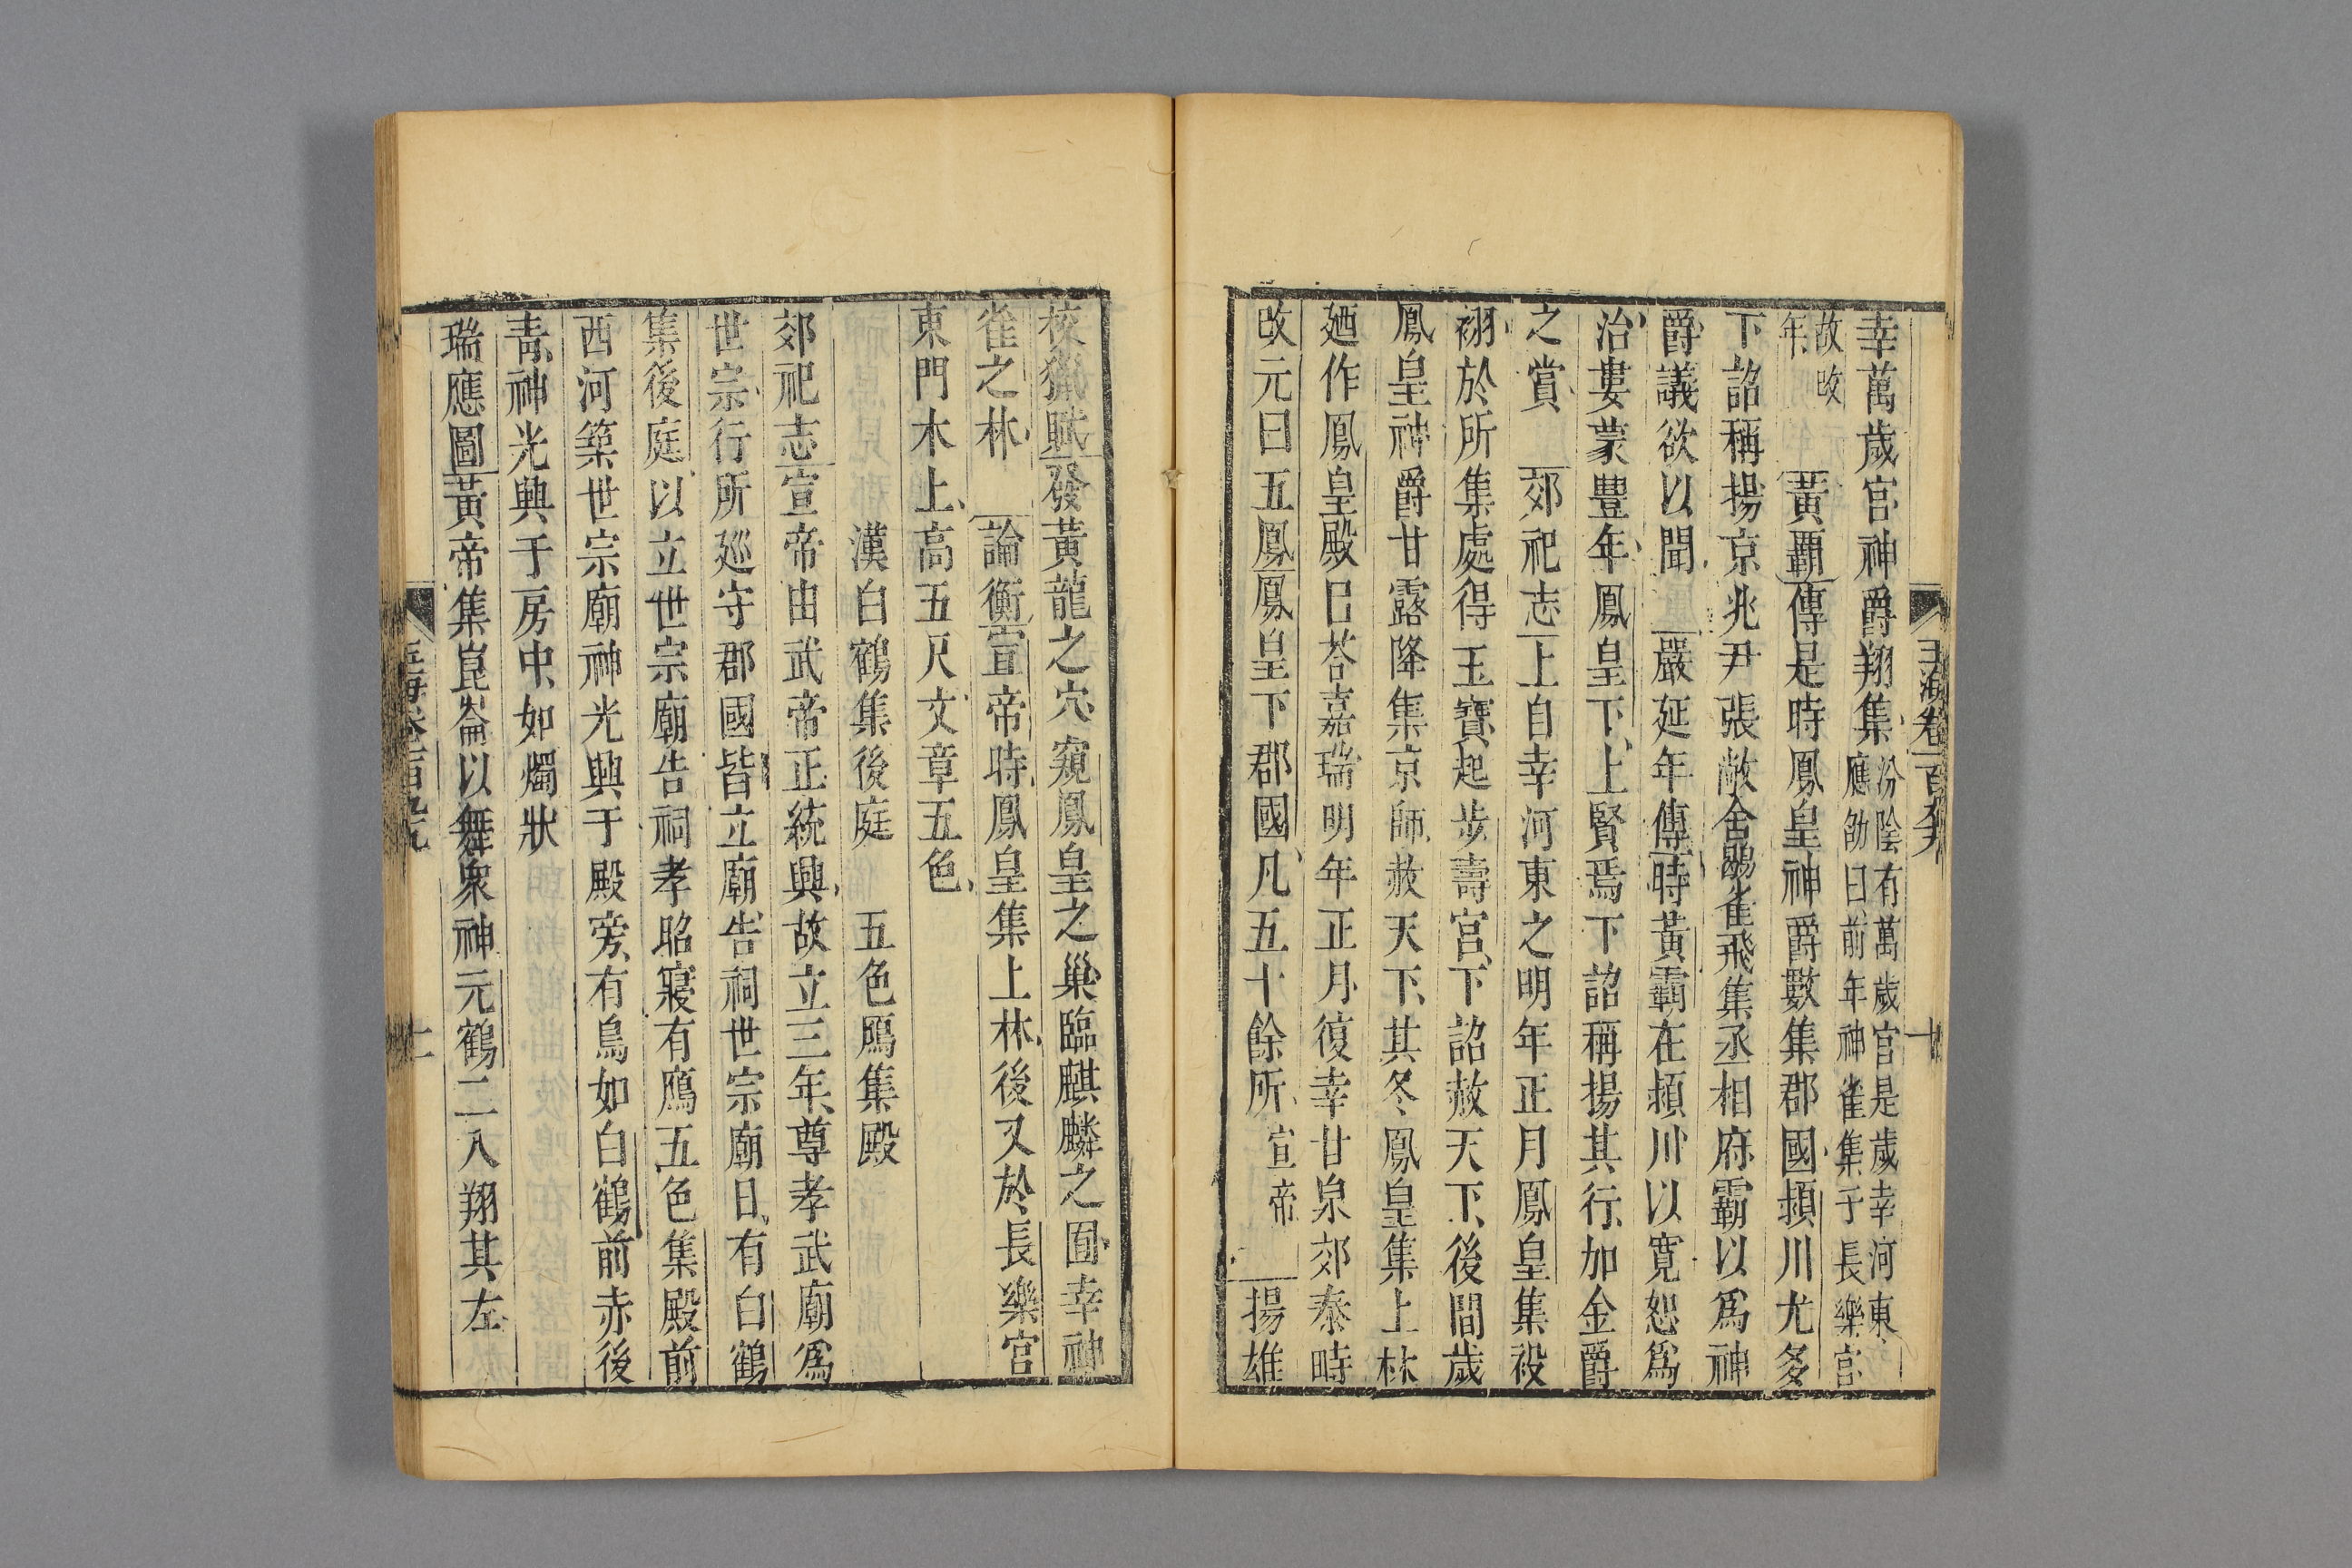 玉海卷一百九十九
十
幸萬歲宮神爵翔集汾陰有萬歲宮是歲幸河東
應劭曰前年神雀集于長樂宮
故改
年
黃霸傳是時鳳皇神爵數集郡國潁川尤多
下詔稱揚京兆尹張敞舍鶡雀飛集丞相府霸以爲神
爵議欲以聞
嚴延年傳時黃霸在潁川以寬恕爲
治婁蒙豐年鳳皇下上賢焉下詔稱揚其行加金爵
之賞
郊祀志上自幸河東之明年正月鳳皇集祋
祤於所集處得玉寶起步壽宮下詔赦天下後間歲
鳳皇神爵甘露降集京師赦天下其冬鳳皇集上林
廼作鳳皇殿㠯荅嘉瑞明年正月復幸甘泉郊泰畤
改元曰五鳳鳳皇下郡國凡五十餘所宣帝
揚雄
校獵賦發黃龍之穴窺鳳皇之巢臨麒麟之囿幸神
雀之林
論衡宣帝時鳳皇集上林後又於長樂宮
東門木上高五尺文章五色
漢白鶴集後庭
五色鴈集殿
郊祀志宣帝由武帝正統興故立三年尊孝武廟爲
世宗行所廵守郡國皆立廟告祠世宗廟日有白鶴
集後庭以立世宗廟告祠孝昭寢有鴈五色集殿前
西河築世宗廟神光興于殿旁有鳥如白鶴前赤後
靑神光興于房中如燭狀
瑞應圖黃帝集崑崙以舞衆神元鶴二八翔其左